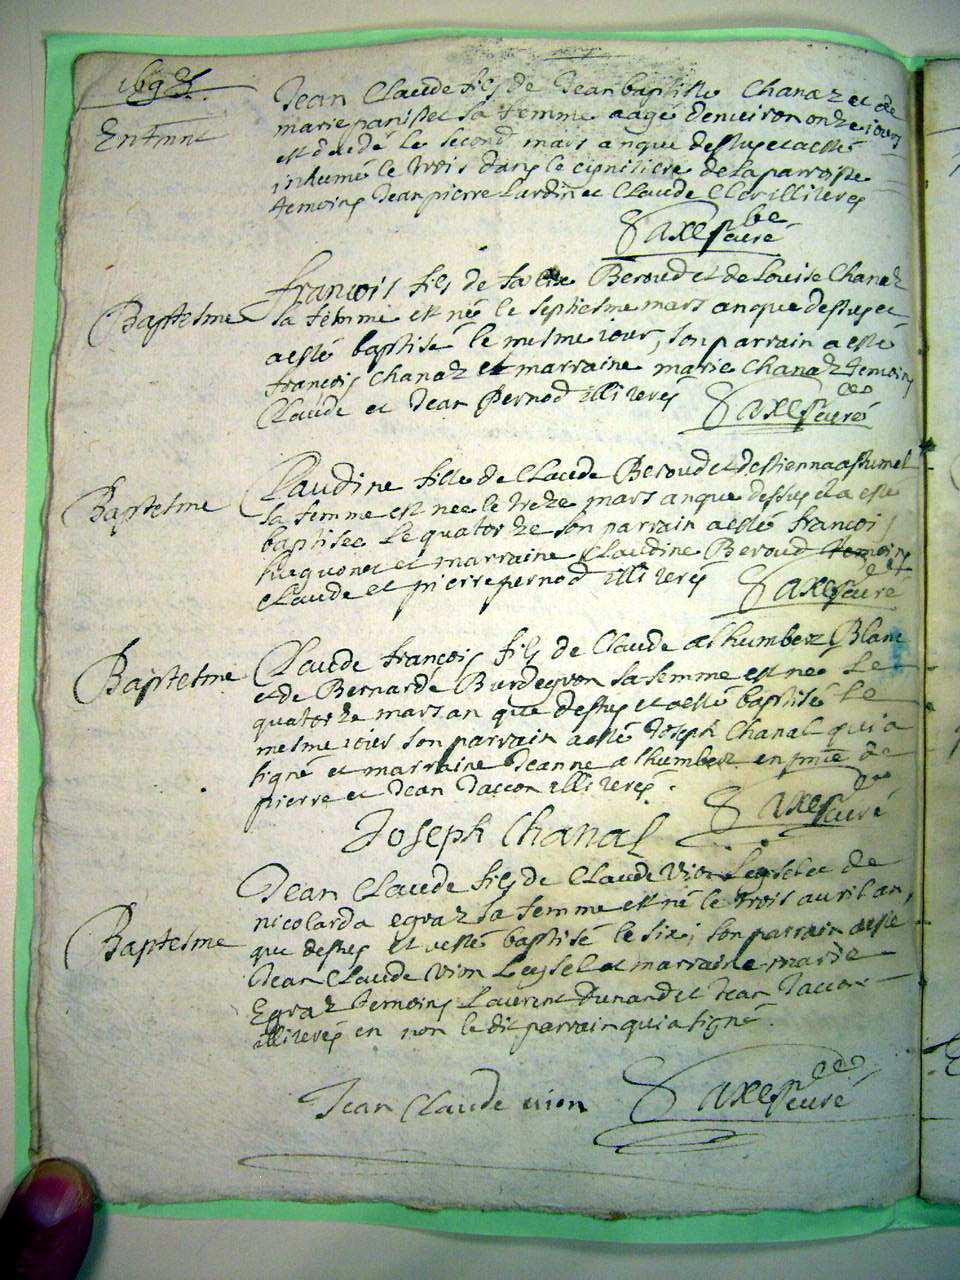 Enterment
Jean Claude fils de Jean baptiste Chanaz et de
marie panisset sa femme aagé denuiron onze iours
est decedé le second mars an que dessus et a esté
inhumé le trois dans le cimitiere de la parroisse
temoins Jean pierre Lardin et Claude illiterés
curé
Baptesme
françois fils de Beroud et de Louise Chanaz
sa femme est né le septiesme mars an que dessus et
a esté baptisé le mesme iour, son parrain a esté
françois Chanaz et marraine marie Chanaz temoins
Claude et Jean Pernod illiterés
curé
Baptesme
Claudine fille de Claude Beroud et destienna
sa femme est nee le treze mars an que dessus et a esté
baptisee le quatorze son parrain a esté françois
huguonet et marraine Claudine Beroud temoins
Claude et pierre pernod illiterés
curé
Baptesme
Claude françois fils de Claude alhumbert Blanc
et de Bernarde sa femme est né le
quatorze mars an que dessus et a esté baptisé le
mesme iour son parrain a esté Joseph Chanal qui a
signé et marraine Jeanne alhumbert en pnce de
pierre et Jean Jaccon illiterés.
Joseph Chanal
curé
Baptesme
Jean Claude fils de Claude Vion Leysel et de
nicolarda egraz sa femme est né le trois auril an
que dessus et a esté baptisé le six; son parrain a esté
Jean Claude Vion Leysel et marraine marie
Egraz temoins Laurent Dunand et Jean Jaccon
illiterés en non le dit parrain qui a signé.
Jean Claude vion
curé